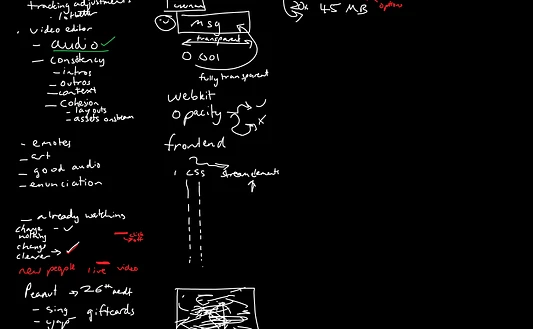 tracking adjustments
- video editor
- audio
- consistency
- intros
- outros
- context
- cohesion
- layouts
- assets onstream
- emotes
- art
- good audio
- enunciation
- already watching
change nothing -
change cleaner ->
new people live video
Peanut -> 26th
- sing giftcards
- yap
msg
transparent
0.001
fully transparent
webkit
opacity
frontend
css streamelements
20s 45 MB
options